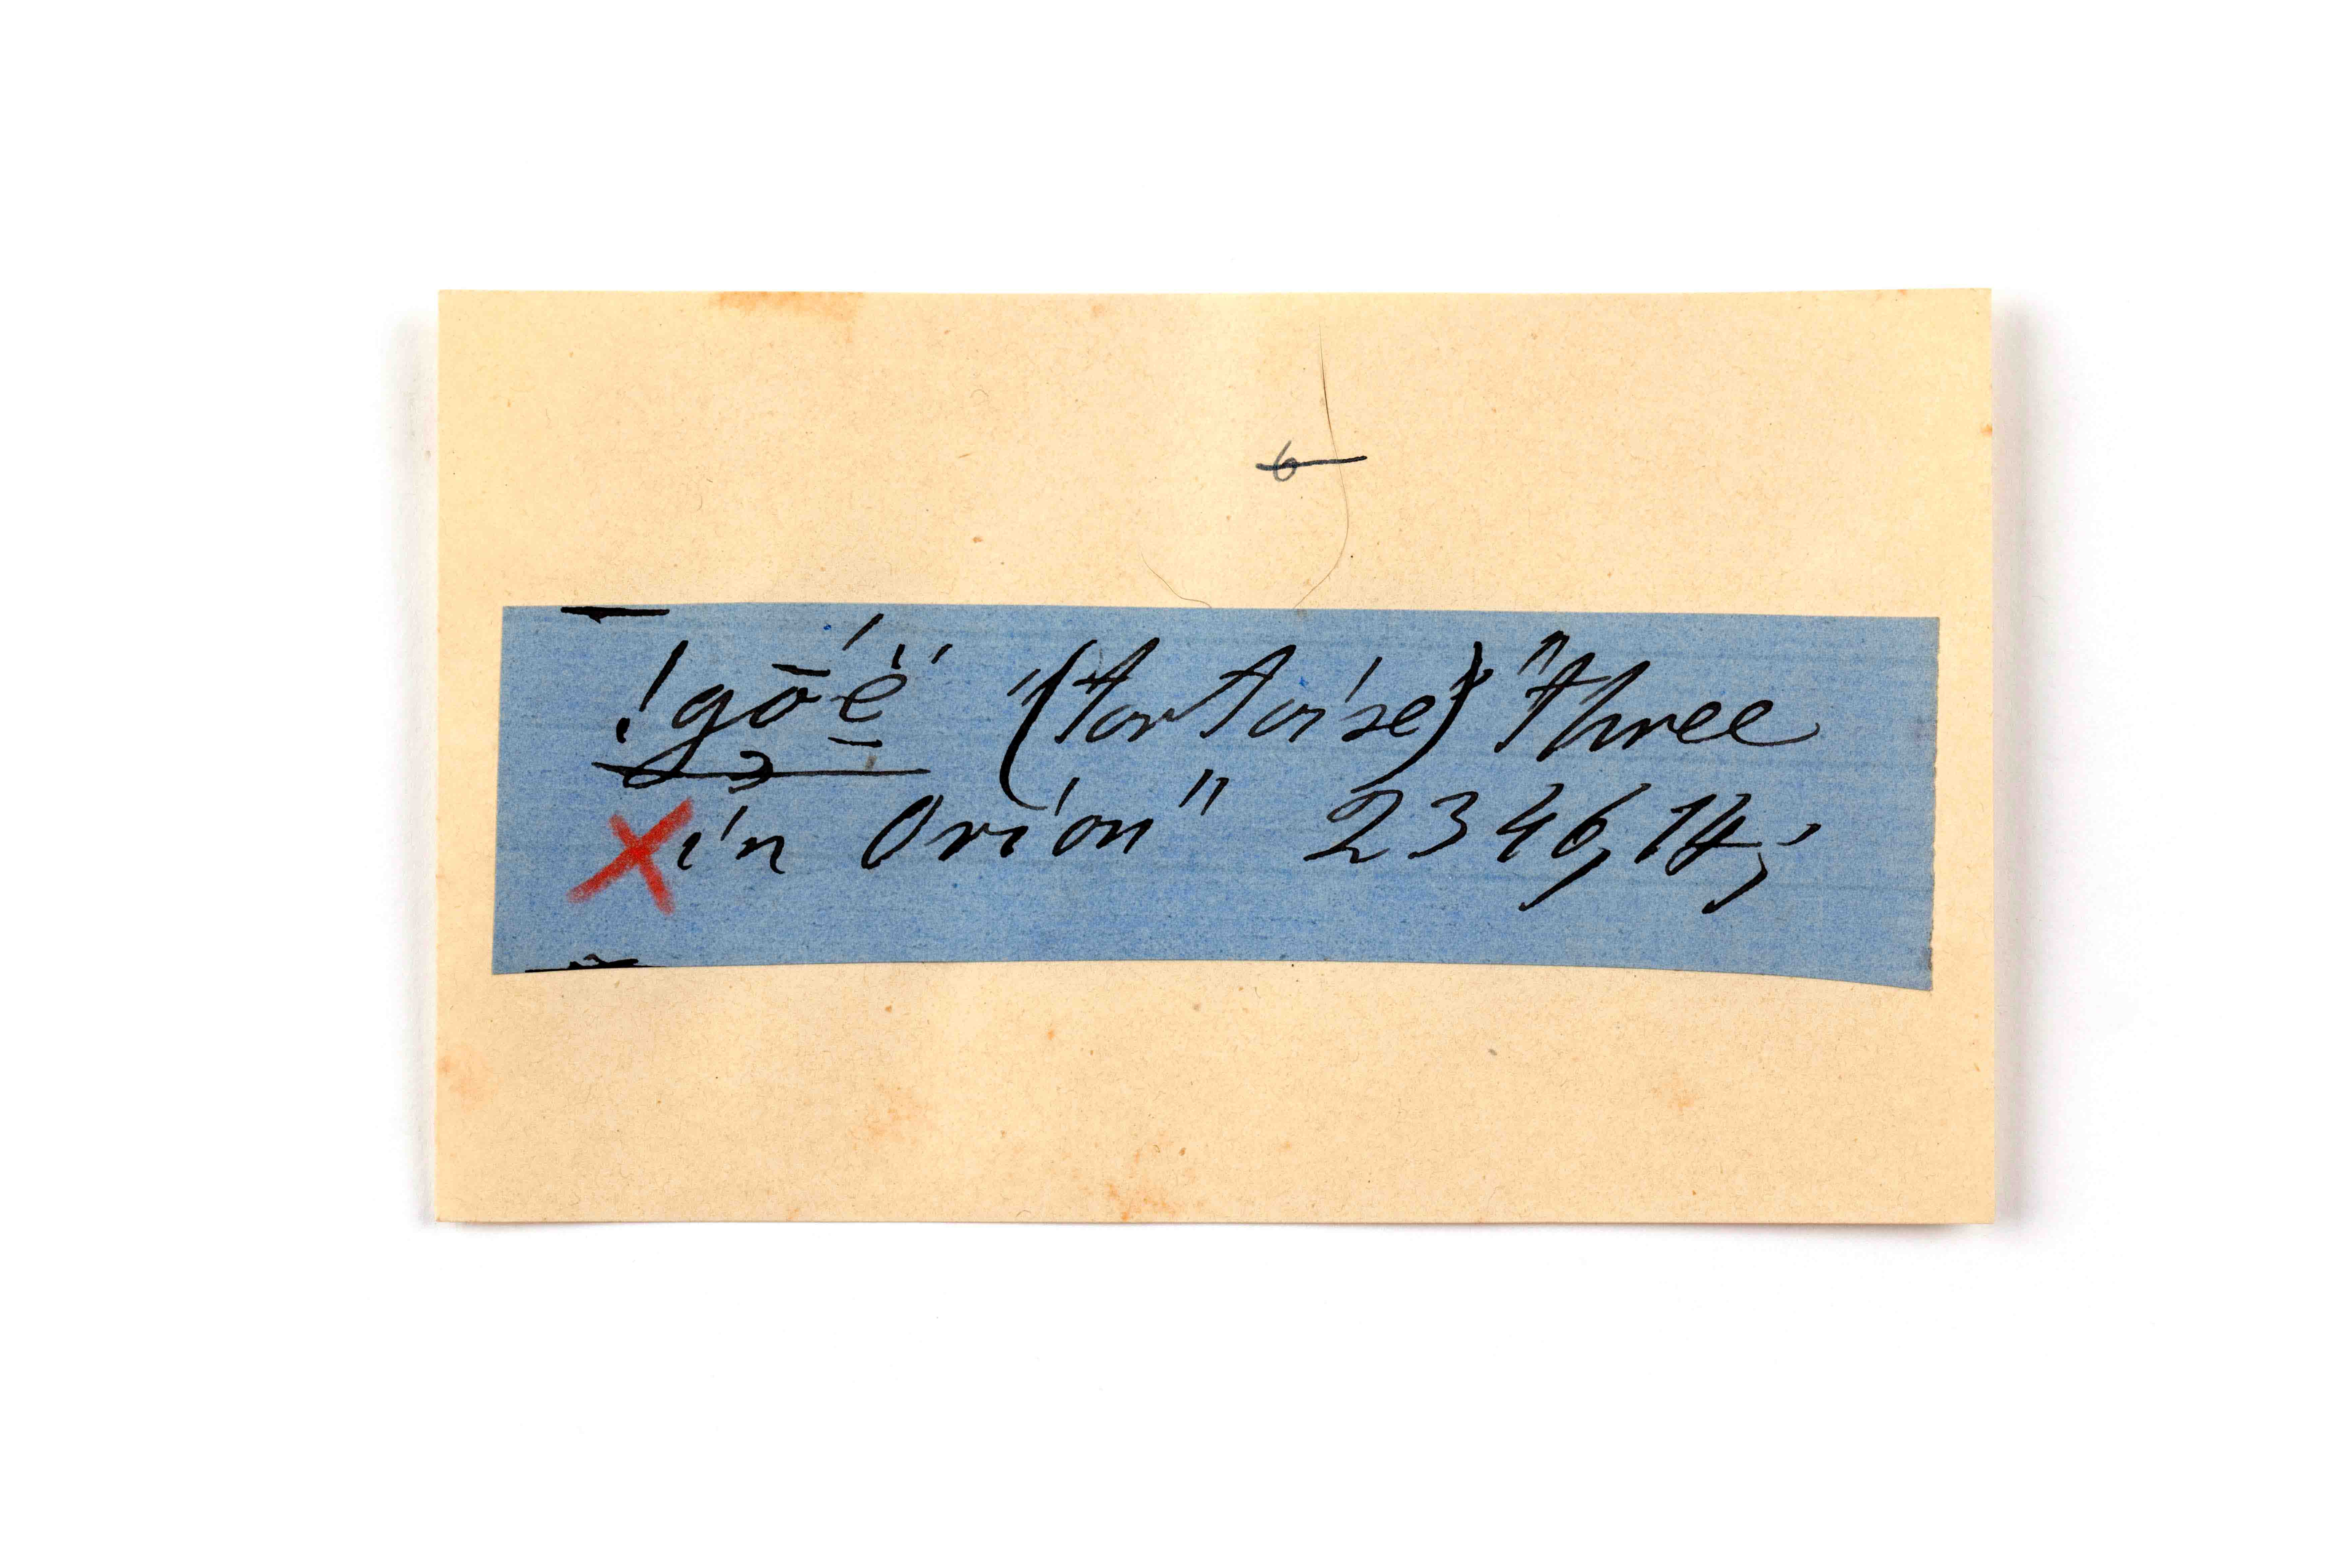 6
!gō´ë̱ "(tortoise) "three
X in Orion" 2346, 14;